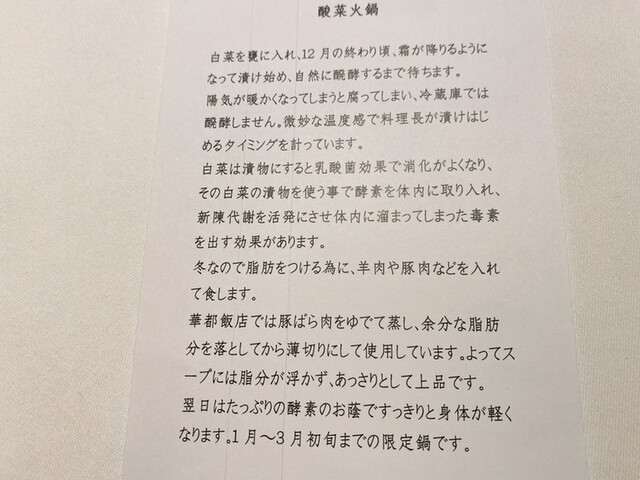 酸菜火鍋
白菜を甕に入れ、12月の終わり頃、霜が降りるように
なって漬け始め、自然に醗酵するまで待ちます。
陽気が暖かくなってしまうと腐ってしまい、冷蔵庫では
醗酵しません。微妙な温度感で料理長が漬けはじ
めるタイミングを計っています。
白菜は漬物にすると乳酸菌効果で消化がよくなり、
その白菜の漬物を使う事で酵素を体内に取り入れ、
新陳代謝を活発にさせ体内に溜まってしまった毒素
を出す効果があります。
冬なので脂肪をつける為に、羊肉や豚肉などを入れ
て食します。
華都飯店では豚ばら肉をゆでて蒸し、余分な脂肪
分を落としてから薄切りにして使用しています。よってス
ープには脂分が浮かず、あっさりとして上品です。
翌日はたっぷりの酵素のお蔭ですっきりと身体が軽く
なります。1月～3月初旬までの限定鍋です。